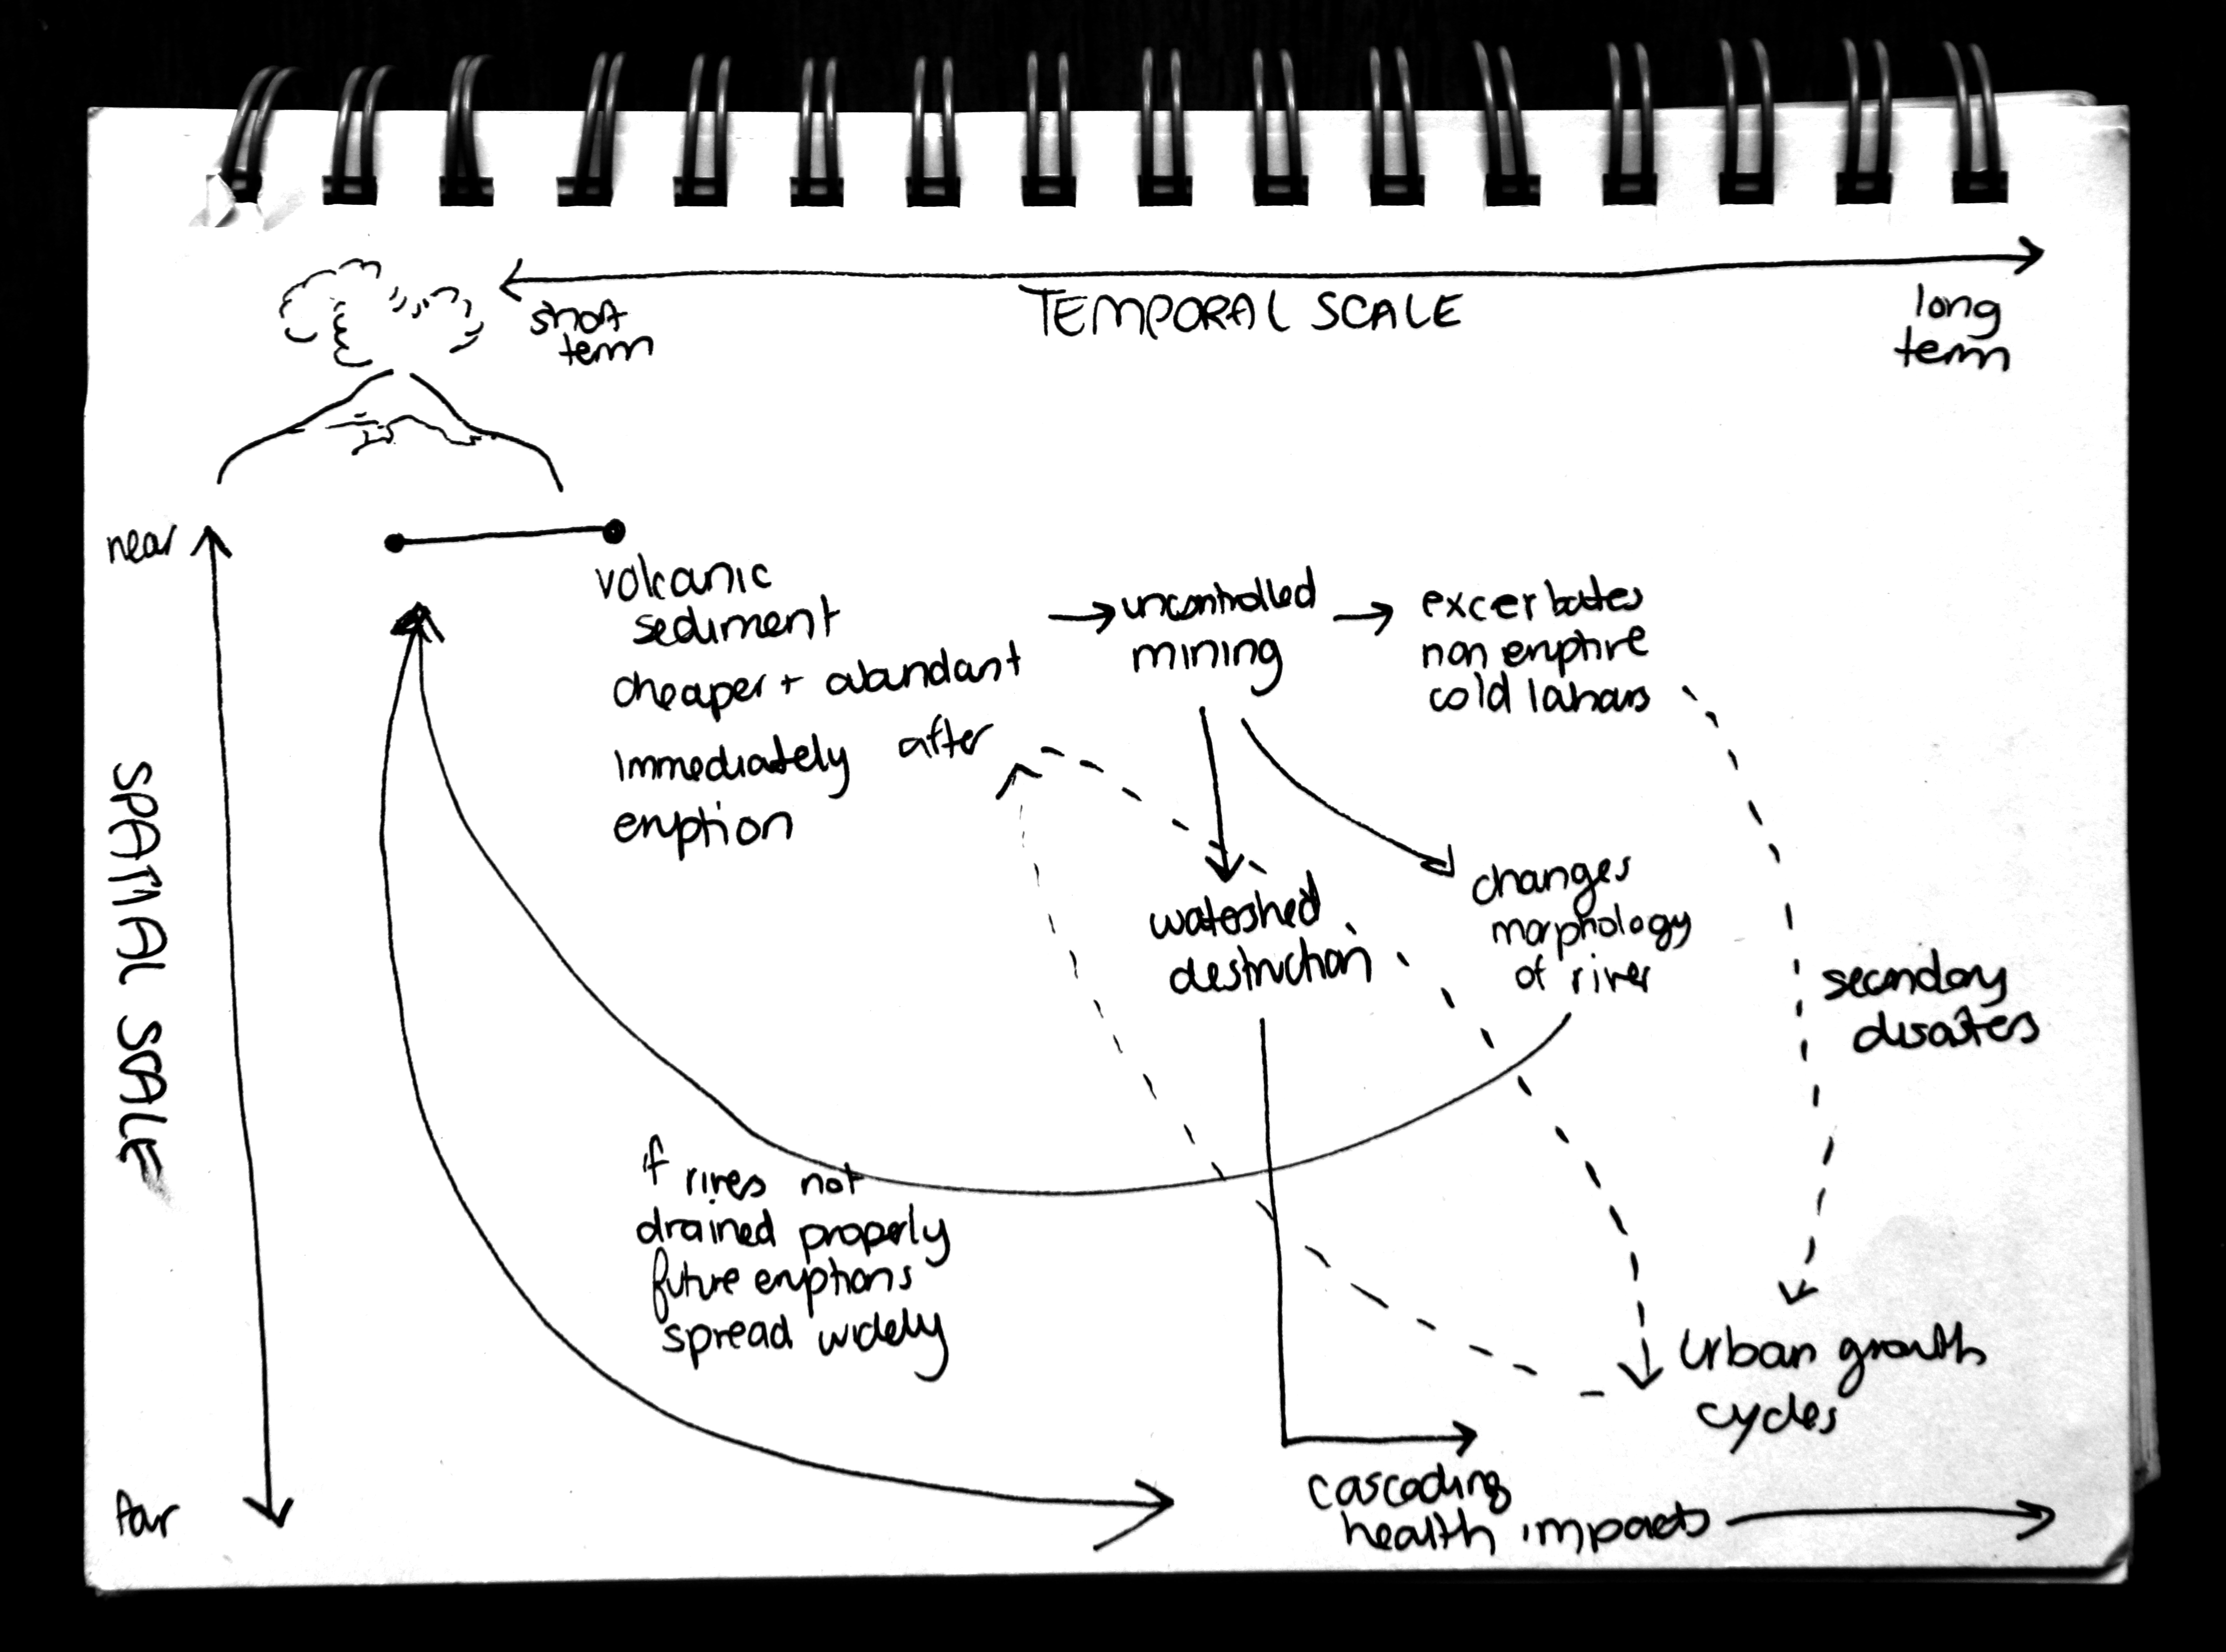 short
term
TEMPORAL SCALE
long
term
near
SPATIAL SCALE
far
volcanic
sediment
cheaper + abundant
immediately after
eruption
uncontrolled
mining
excerbates
non eruptive
cold lahars
watershed
destruction
changes
morphology
of river
secondary
disasters
if rivers not
drained properly
future eruptions
spread widely
urban growth
cycles
cascading
health impacts